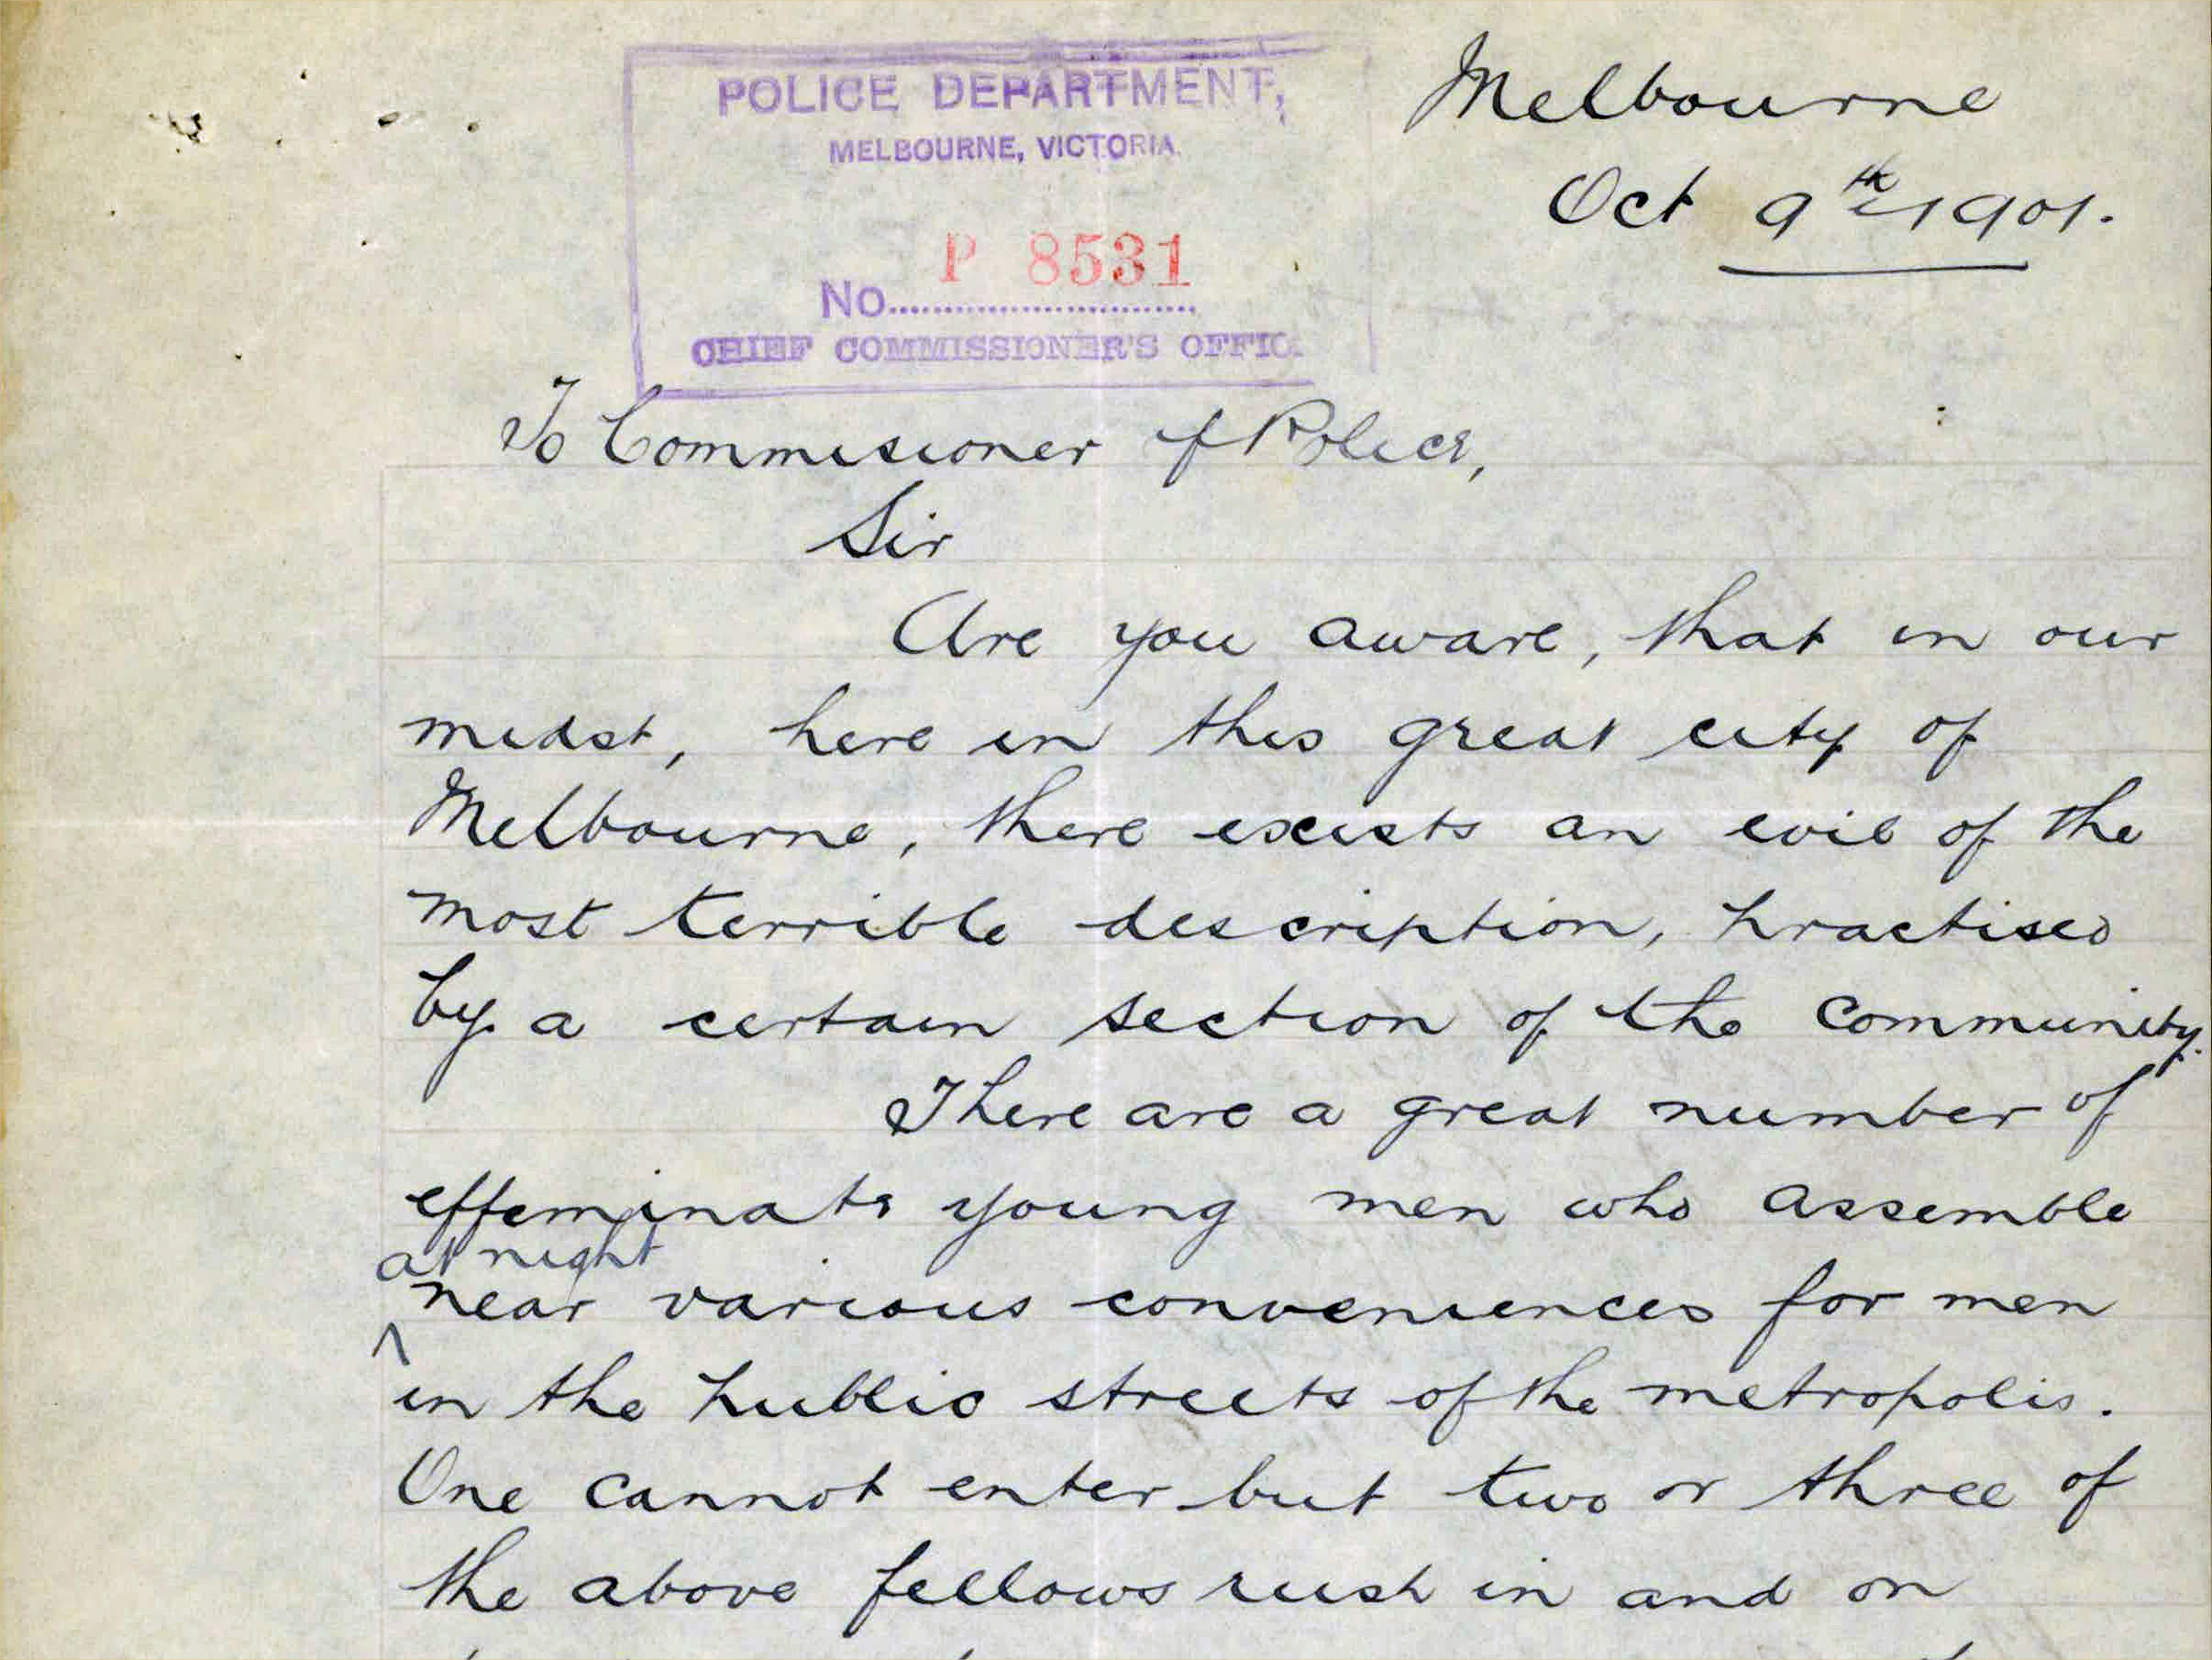 POLICE DEPARTMENT,
MELBOURNE, VICTORIA.
P 8531
No..............................
CHIEF COMMISSIONER'S OFFIC
Melbourne
Oct 9th 1901.
To Commisioner of Police,
Sir
Are you aware, that in our
midst, here in this great city of
Melbourne, there exists an evil of the
most terrible description, practised
by a certain section of the community.
There are a great number of
effeminate young men who assemble
at night
near various conveniences for men
in the public streets of the metropolis.
One cannot enter but two or three of
the above fellows rush in and on